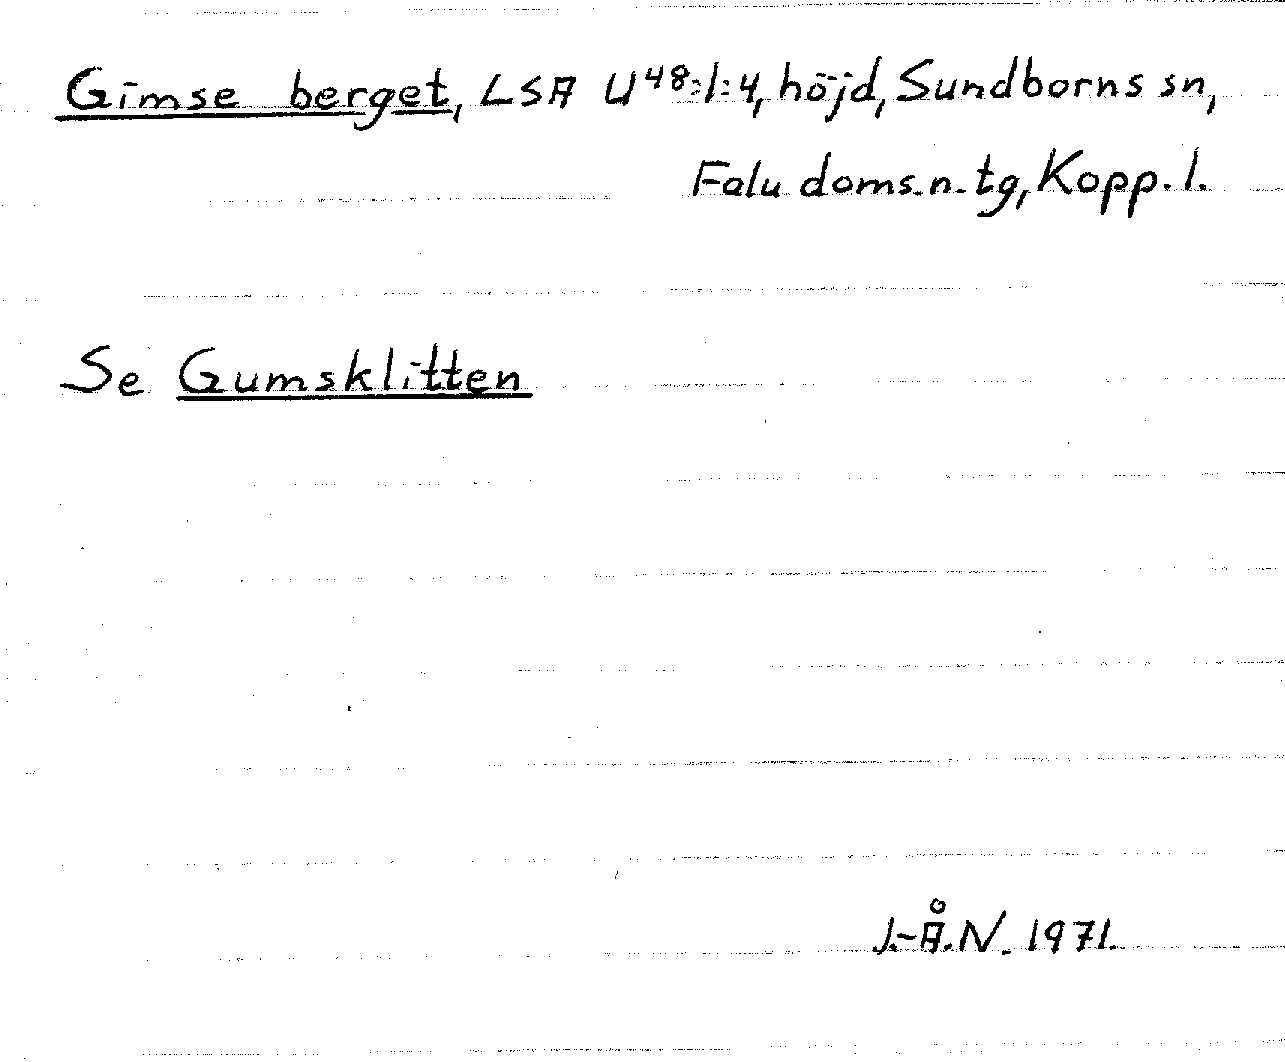 Gimse berget, LSA U⁴⁸:1:4, höjd, Sundborns sn,
Falu doms.n. tg, Kopp. l.
Se Gumsklitten
J.-Å.N. 1971.